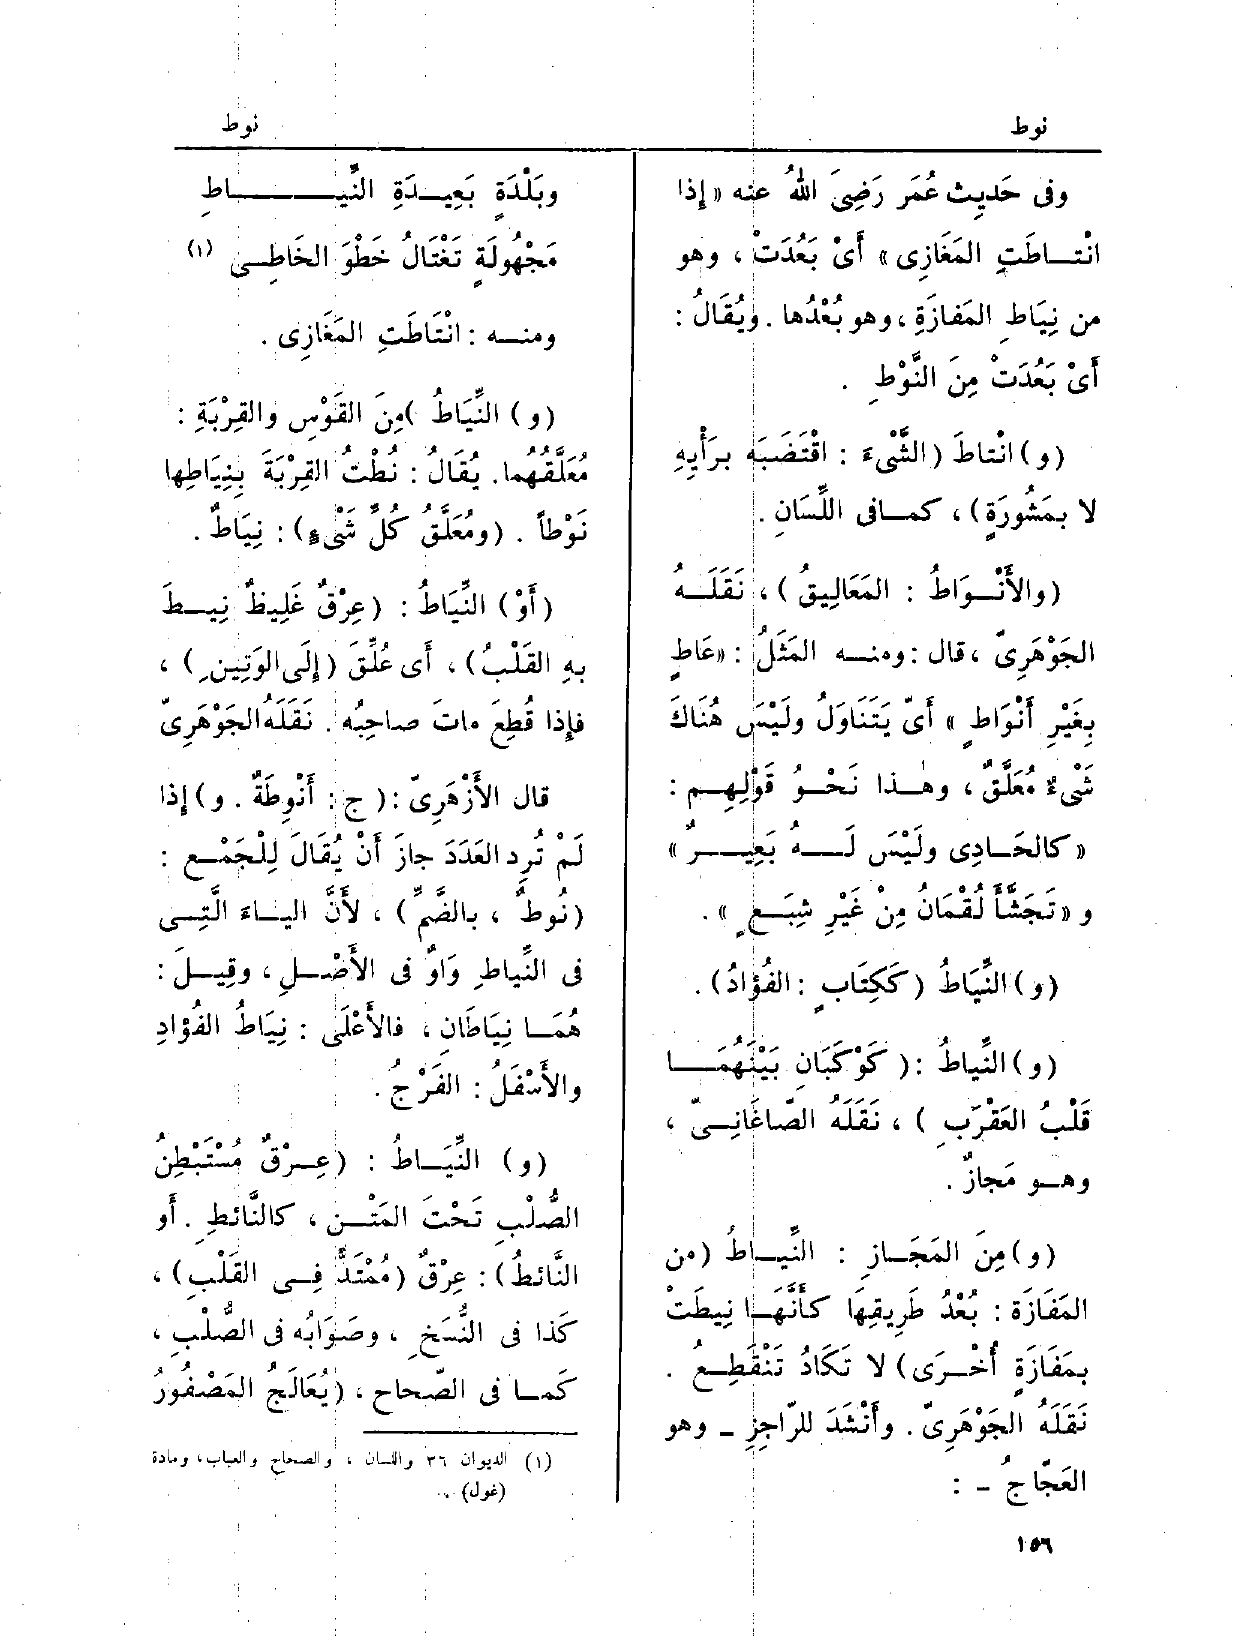 نوط
نوط
وفى حَدِيثِ عُمَر رَضِىَ اللهُ عنه «إِذا
انْتـاطَتِ المَغَازِى» أَىْ بَعُدَتْ، وهو
من نِيَاطِ المَفازَةِ، وهو بُعْدُها. ويُقَالُ:
أَىْ بَعُدَتْ مِنَ النَّوْطِ.
(و) انْتاطَ (الشَّىءَ: اقْتَضَبَه برَأْيِهِ
لا بمَشُورَةٍ)، كمـا فى اللِّسَانِ.
(والأَنْـوَاطُ: المَعَالِيقُ)، نَقَلَـهُ
الجَوْهَرِىّ، قال: ومنـه المَثَلُ: «عَاطٍ
بِغَيْرِ أَنْوَاطٍ» أَىّ يَتَنَاوَلُ ولَيْسَ هُنَاكَ
شَىْءٌ مُعَلَّقٌ، وهـذا نَحْـوُ قَوْلِهِـم:
«كالحَـادِى ولَيْسَ لَـهُ بَعِيـرٌ»
و «تَجَشَّأَ لُقْمَانُ مِنْ غَيْرِ شِبَـعٍ».
(و) النِّيَاطُ (كَكِتَابٍ: الفُؤَادُ).
(و) النِّياطُ: (كَوْكَبَانِ بَيْنَهُمَـا
قَلْبُ العَقْرَبِ)، نَقَلَهُ الصّاغَانِـىّ،
وهـو مَجازٌ.
(و) مِنَ المَجَـازِ: النِّيـاطُ (من
المَفَازَة: بُعْدُ طَرِيقِهَا كأَنَّهَـا نِيطَتْ
بمَفَازَةٍ أُخْـرَى) لا تَكَادُ تَنْقَطِـعُ.
نَقَلَهُ الجَوْهَرِىّ. وأَنْشَدَ للرّاجِزِ ـ وهو
العَجّاجُ ـ:
وبَلْدَةٍ بَعِيـدَةِ النِّيَـــاطِ
مَجْهُولَةٍ تَغْتَالُ خَطْوَ الخَاطِـى (١)
ومنـه: انْتَاطَتِ المَغَازِى.
(و) النِّيَاطُ (مِنَ القَوْسِ والقِرْبَةِ:
مُعَلَّقُهُما. يُقَالُ: نُطْتُ القِرْبَةَ بِنِيَاطِها
نَوْطاً. (ومُعَلَّقُ كُلِّ شَىْءٍ): نِيَاطٌ.
(أَوْ) النِّيَاطُ: (عِرْقٌ غَلِيظٌ نِيـطَ
بهِ القَلْبُ)، أَى عُلِّقَ (إِلَى الوَتِينِ)،
فإِذا قُطِعَ مات صاحِبُه. نَقَلَهُ الجَوْهَرِىّ
قال الأَزْهَرِىّ: (ج: أَنْوِطَةٌ. و) إِذا
لَمْ تُرِد العَدَدَ جازَ أَنْ يُقَالَ لِلْجَمْـعِ:
(نُوطٌ، بالضَّمِّ)، لأَنَّ اليـاءَ الَّتِـى
فى النِّياطِ وَاوٌ فى الأَصْـلِ، وقِيـلَ:
هُمَـا نِيَاطَانِ، فالأَعْلَى: نِيَاطُ الفُؤَادِ
والأَسْفَلُ: الفَرْجُ.
(و) النِّيَـاطُ: (عِـرْقٌ مُسْتَبْطِنُ
الصُّلْبِ تَحْتَ المَتْـنِ، كالنَّائطِ. أَو
النَّائطُ): عِرْقٌ (مُمْتَدٌّ فِـى القَلْبِ)،
كَذا فى النُّسَخِ، وصَوَابُه فى الصُّلْبِ،
كمـا فى الصّحاح، (يُعَالَجُ المَصْفُورُ
(١) الديوان ٣٦ واللسان، والصحاح والعباب، ومادة
(غول).
١٥٦